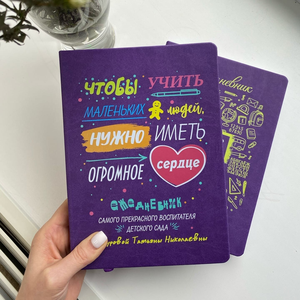 чтобы учить
маленьких людей,
нужно иметь
огромное сердце
ежедневник
самого прекрасного воспитателя
детского сада
Татьяны Николаевны